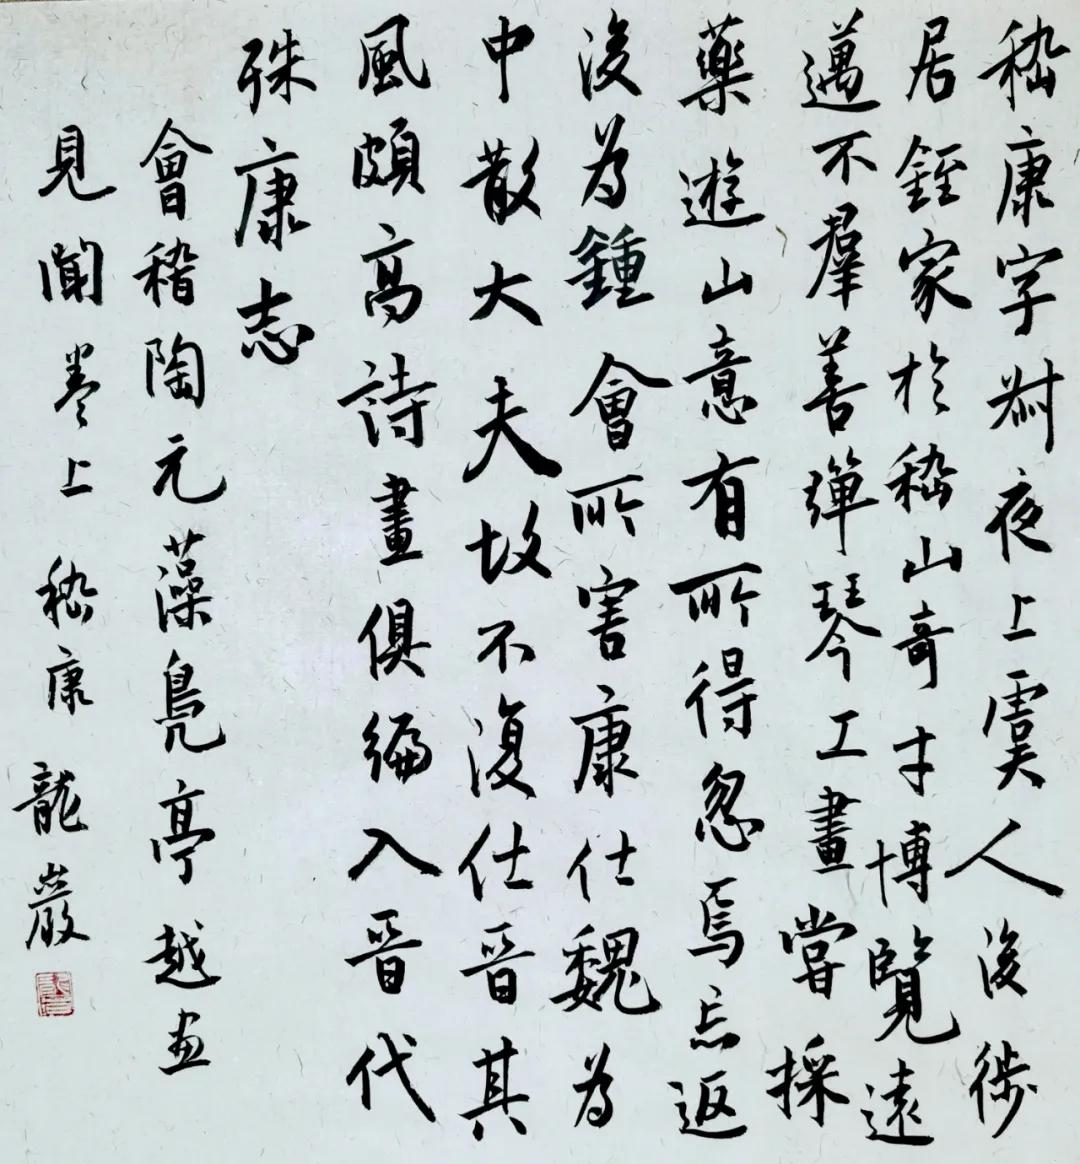 嵇康字叔夜上虞人後徙
居銍家於嵇山奇才博覽遠
邁不羣善彈琴工畫嘗採
藥遊山意有所得忽焉忘返
後為鍾會所害康仕魏為
中散大夫故不復仕晉其
風頗高詩畫俱編入晉代
殊康志
會稽陶元藻鳧亭越画
見聞卷上 嵇康 龍巖